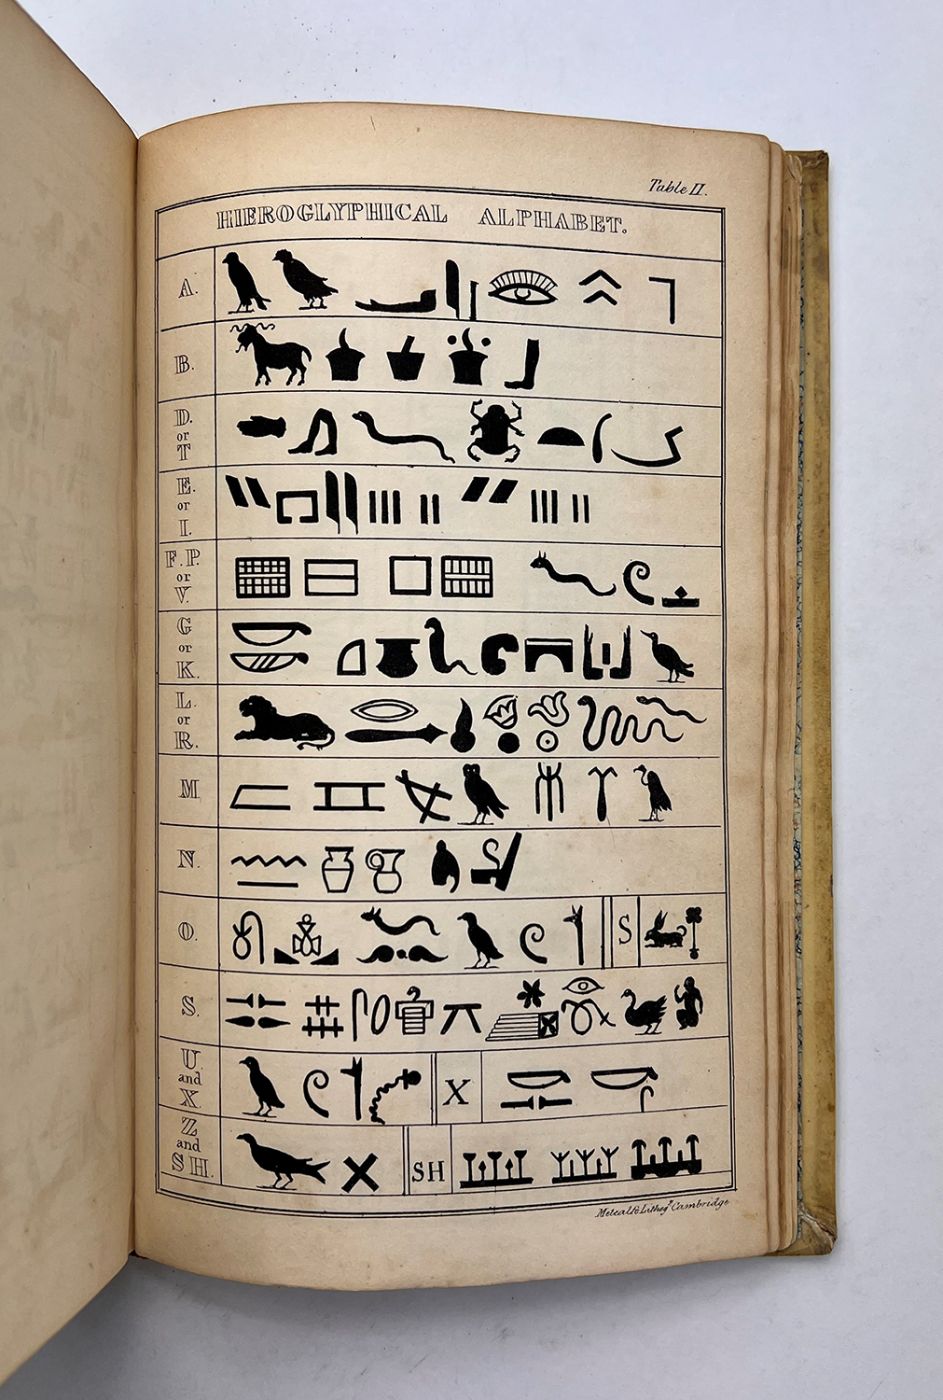 Table II.
HIEROGLYPHICAL ALPHABET.
A.
B.
D.
or
T
E.
or
I.
F. P.
or
V.
G
or
K.
L.
or
R.
M
N.
O. S
S.
U
and
X. X
Z
and
SH. SH
Cambridge